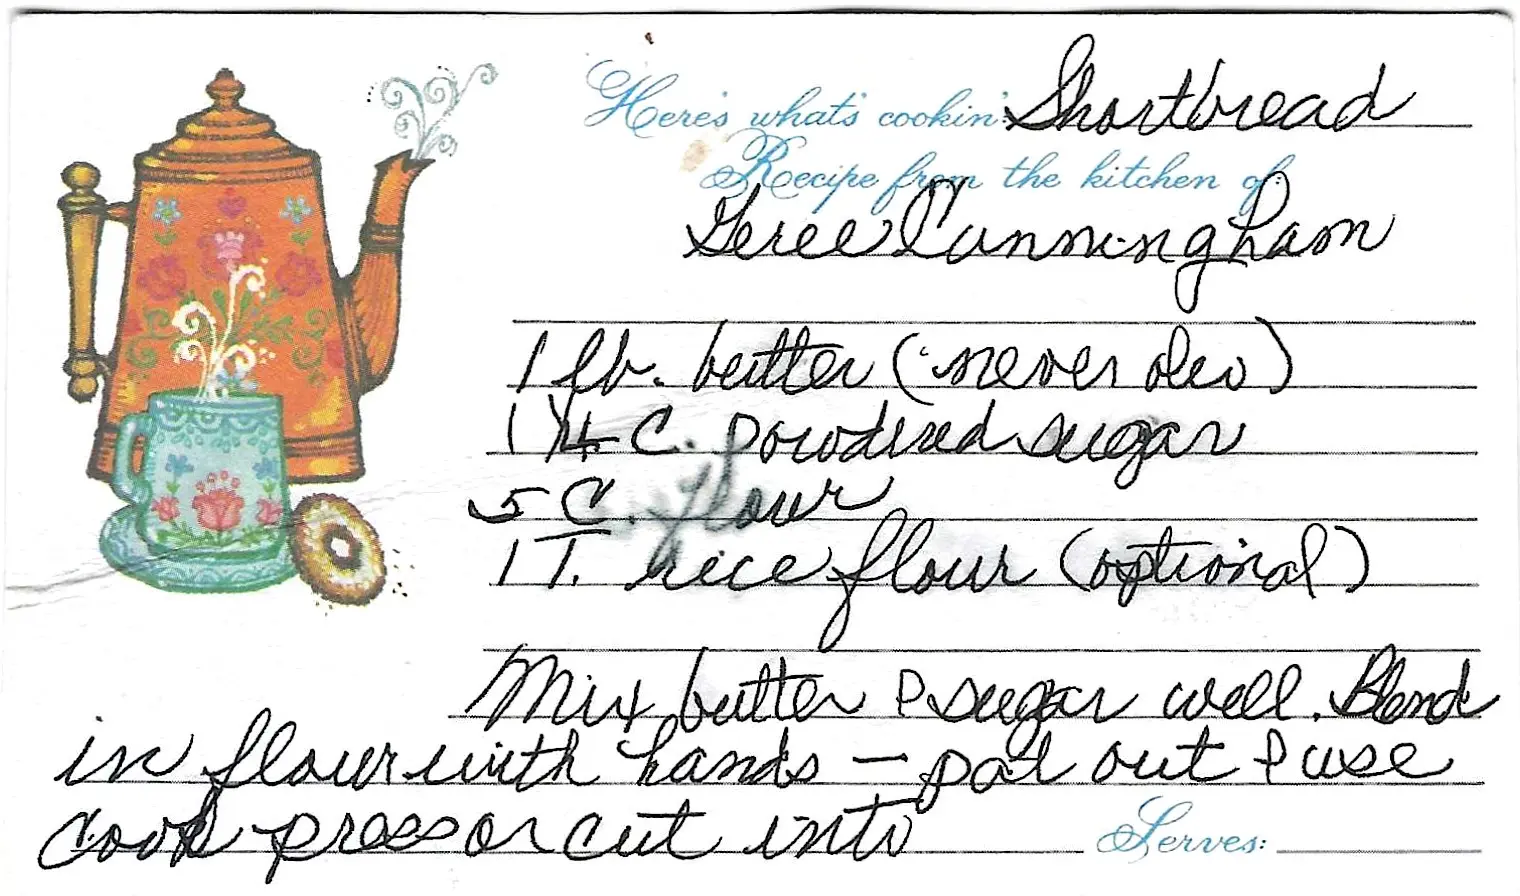 Here's what's cookin': Shortbread
Recipe from the kitchen of:
Geree Cunningham
1 lb. butter (never oleo)
1 1/4 C. powdered sugar
5 C. flour
1 T. rice flour (optional)
Mix butter & sugar well. Blend
in flour with hands – pat out & use
cook press or cut into
Serves: